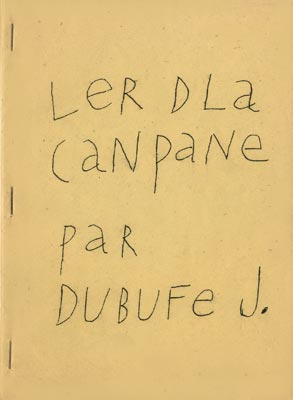 LER DLa
CaNPaNE
PaR
DUBUFe J.